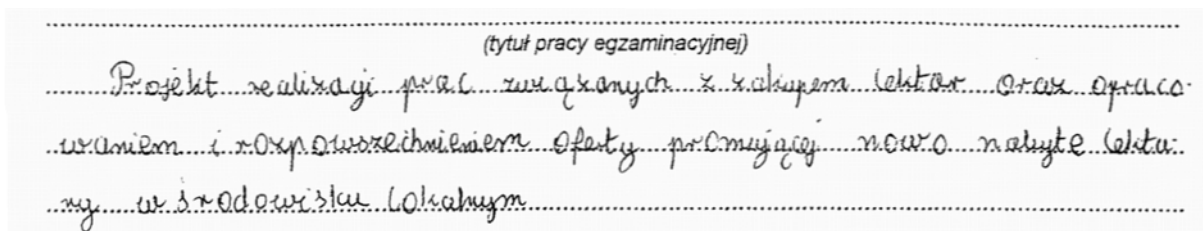 (tytuł pracy egzaminacyjnej)
Projekt realizacji prac związanych z zakupem lektur oraz opraco-
waniem i rozpowszechnieniem oferty promującej nowo nabyte lektu-
ry w środowisku lokalnym